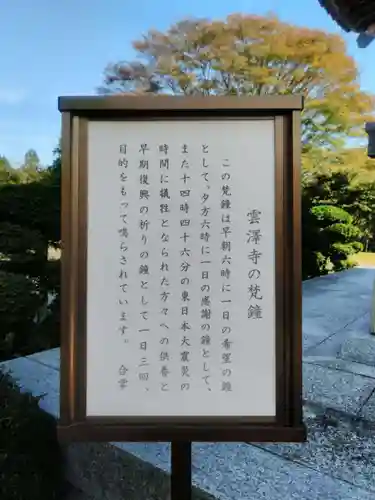 雲澤寺の梵鐘
この梵鐘は早朝六時に一日の希望の鐘
として、夕方六時に一日の感謝の鐘として、
また十四時四十六分の東日本大震災の
時間に犠牲となられた方々への供養と
早期復興の祈りの鐘として一日三回、
目的をもって鳴らされています。 合掌